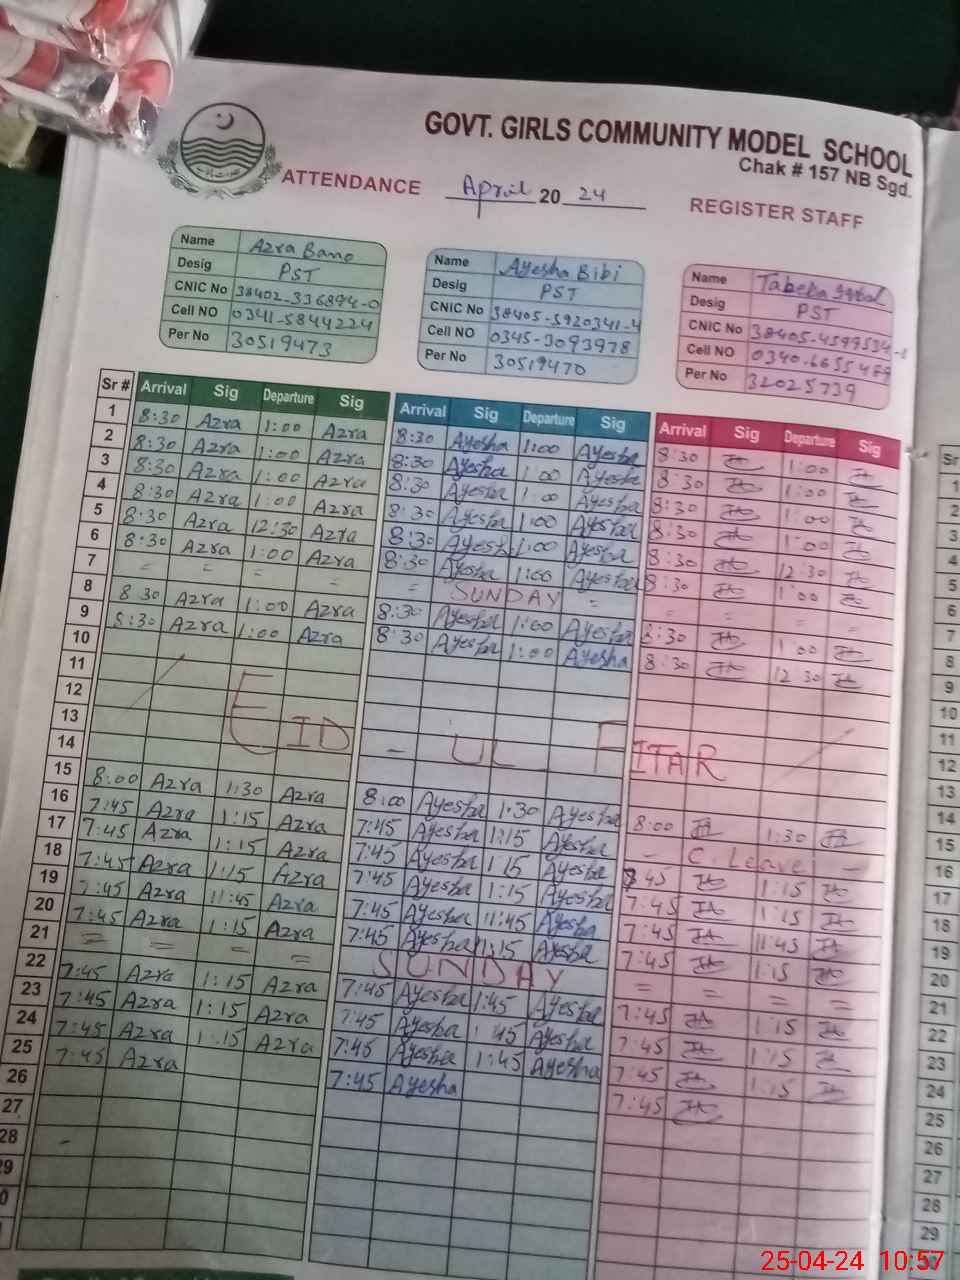 GOVT. GIRLS COMMUNITY MODEL SCHOOL
Chak # 157 NB Sgd.
ATTENDANCE April 2024 REGISTER STAFF
Name Azra Bano
Desig PST
CNIC No 38402-336894-0
Cell NO 0341-5844224
Per No 30519473
Name Ayesha Bibi
Desig PST
CNIC No 38405-5920341-4
Cell NO 0345-3093978
Per No 30519470
Name Tabeka
Desig PST
CNIC No 38405-4599534-
Cell NO 0340-6655489
Per No 32025739
Sr # Arrival Sig Departure Sig Arrival Sig Departure Sig Arrival Sig Departure Sig
1 8:30 Azra 1:00 Azra 8:30 Ayesha 1:00 Ayesha 8:30 1:00
2 8:30 Azra 1:00 Azra 8:30 Ayesha 1:00 Ayesha 8:30 1:00
3 8:30 Azra 1:00 Azra 8:30 Ayesha 1:00 Ayesha 8:30 1:00
4 8:30 Azra 1:00 Azra 8:30 Ayesha 1:00 Ayesha 8:30 1:00
5 8:30 Azra 12:30 Azra 8:30 Ayesha 1:00 Ayesha 8:30 12:30
6 8:30 Azra 1:00 Azra 8:30 Ayesha 1:00 Ayesha 8:30 1:00
7 = = = = = SUNDAY = = = =
8 8:30 Azra 1:00 Azra 8:30 Ayesha 1:00 Ayesha 8:30 1:00
9 8:30 Azra 1:00 Azra 8:30 Ayesha 1:00 Ayesha 8:30 12:30
10
11
12
13 EID - UL FITAR
14
15 8:00 Azra 1:30 Azra 8:00 Ayesha 1:30 Ayesha 8:00 1:30
16 7:45 Azra 1:15 Azra 7:45 Ayesha 1:15 Ayesha - C. Leave -
17 7:45 Azra 1:15 Azra 7:45 Ayesha 1:15 Ayesha 7:45 1:15
18 7:45 Azra 1:15 Azra 7:45 Ayesha 1:15 Ayesha 7:45 1:15
19 7:45 Azra 11:45 Azra 7:45 Ayesha 11:45 Ayesha 7:45 11:45
20 7:45 Azra 1:15 Azra 7:45 Ayesha 1:15 Ayesha 7:45 1:15
21 = = = = SUNDAY = = = =
22 7:45 Azra 1:15 Azra 7:45 Ayesha 1:45 Ayesha 7:45 1:15
23 7:45 Azra 1:15 Azra 7:45 Ayesha 1:45 Ayesha 7:45 1:15
24 7:45 Azra 1:15 Azra 7:45 Ayesha 1:45 Ayesha 7:45 1:15
25 7:45 Azra 7:45 Ayesha 7:45
26
27
28
29
0
Sr
1
2
3
4
5
6
7
8
9
10
11
12
13
14
15
16
17
18
19
20
21
22
23
24
25
26
27
28
29
25-04-24 10:57